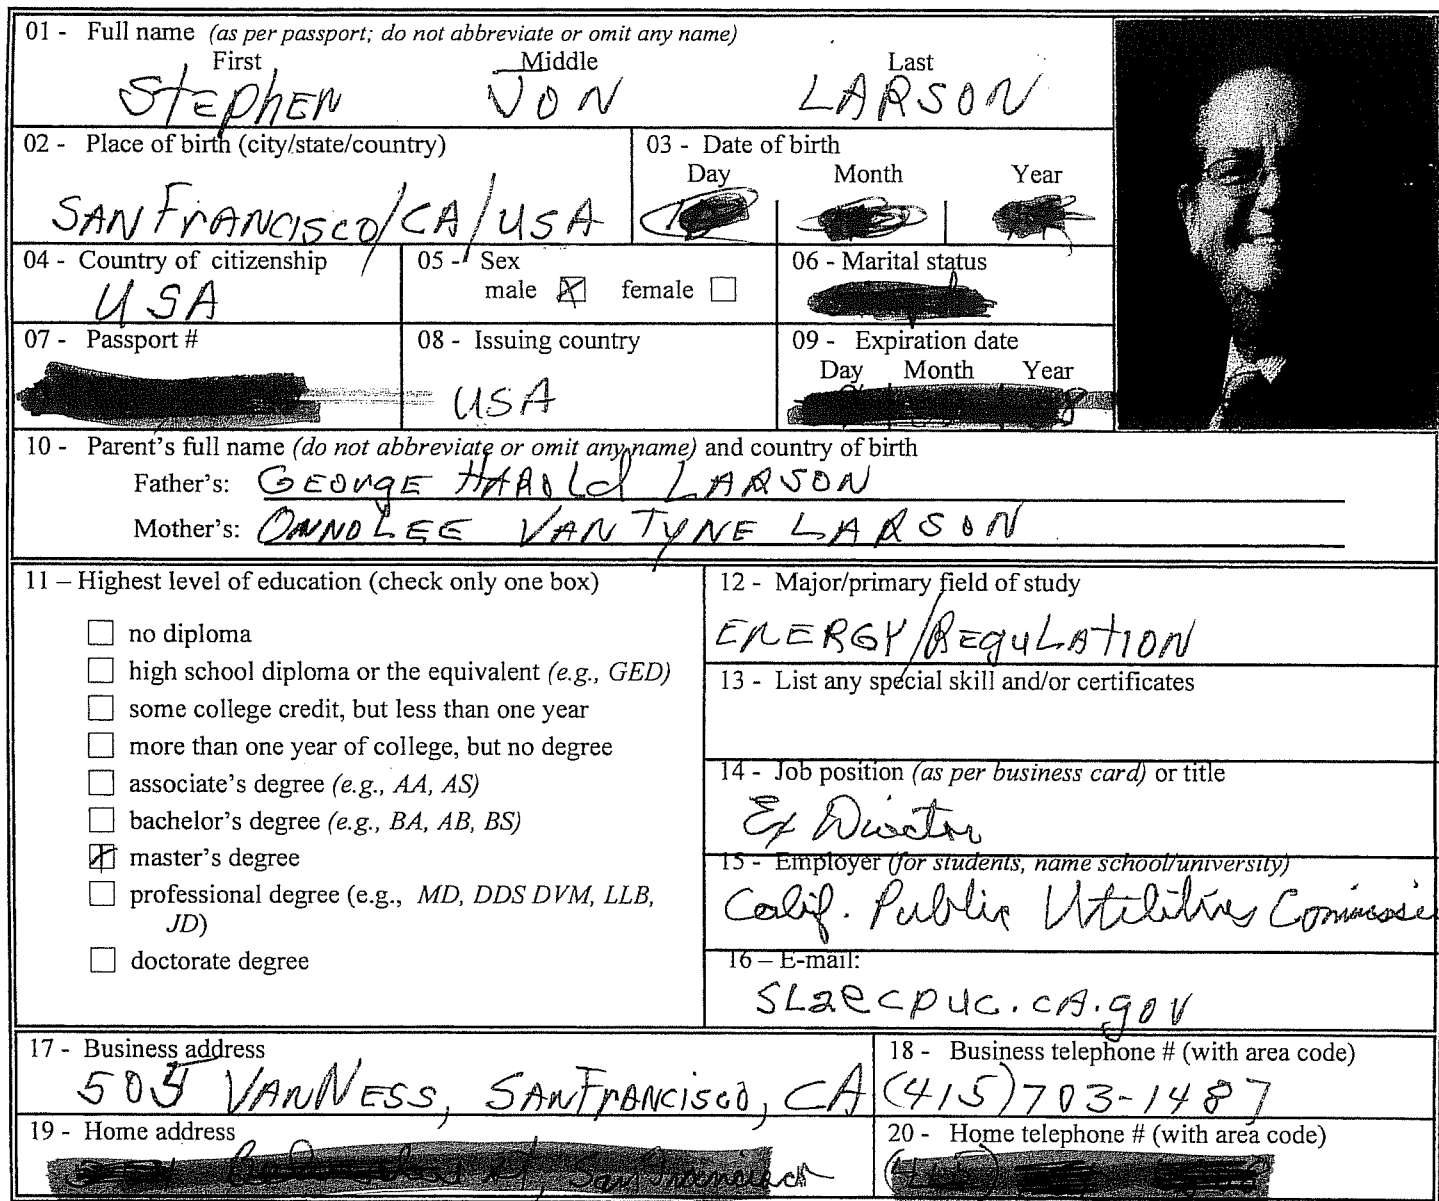 01 - Full name (as per passport; do not abbreviate or omit any name)
First Middle Last
StephEN JON LARSON
02 - Place of birth (city/state/country)
SAN FrANCISCO/CA/USA
03 - Date of birth
Day Month Year
04 - Country of citizenship
USA
05 - Sex
male ☒ female ☐
06 - Marital status
07 - Passport #
08 - Issuing country
USA
09 - Expiration date
Day Month Year
10 - Parent's full name (do not abbreviate or omit any name) and country of birth
Father's: GEOrgE HAROLd LARSON
Mother's: ONNOLEE VAN TYNE LARSON
11 – Highest level of education (check only one box)
☐ no diploma
☐ high school diploma or the equivalent (e.g., GED)
☐ some college credit, but less than one year
☐ more than one year of college, but no degree
☐ associate's degree (e.g., AA, AS)
☐ bachelor's degree (e.g., BA, AB, BS)
☒ master's degree
☐ professional degree (e.g., MD, DDS DVM, LLB,
JD)
☐ doctorate degree
12 - Major/primary field of study
ENERGY/REguLATION
13 - List any special skill and/or certificates
14 - Job position (as per business card) or title
Ex Director
15 - Employer (for students, name school/university)
Calif. Public Utilities Commissi
16 – E-mail:
SL2@cpuc.cA.gov
17 - Business address
505 VANNESS, SANFrANCISCO, CA
18 - Business telephone # (with area code)
(415)703-1487
19 - Home address
San Francisco
20 - Home telephone # (with area code)